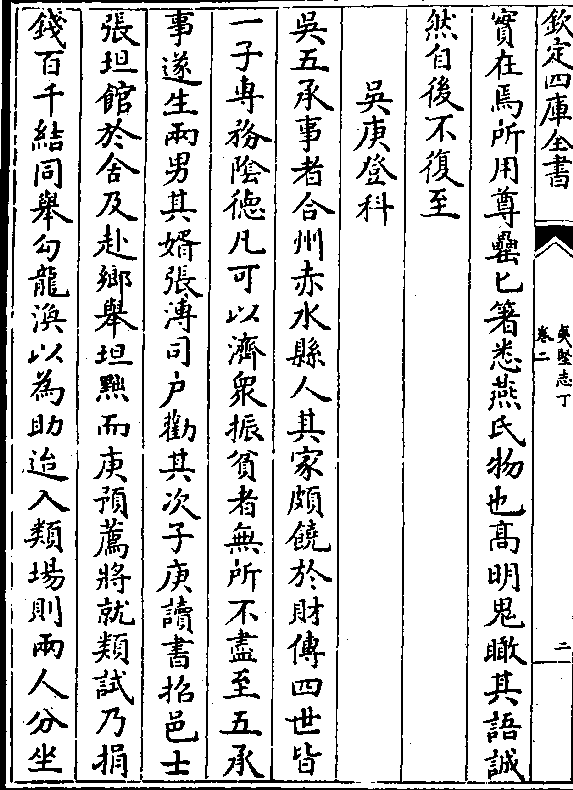 欽定四庫全書
夷堅志丁
卷二
二
實在焉所用尊罍匕箸悉燕氏物也高明鬼瞰其語誠
然自後不復至
吳庚登科
吳五承事者合州赤水縣人其家頗饒於財傳四世皆
一子専務陰德凡可以濟衆振貧者無所不盡至五承
事遂生兩男其婿張溥司户勸其次子庚讀書招邑士
張坦館於舍及赴鄉舉坦黜而庚預薦將就類試乃捐
錢百千結同舉勾龍渙以為助迨入類場則兩人分坐